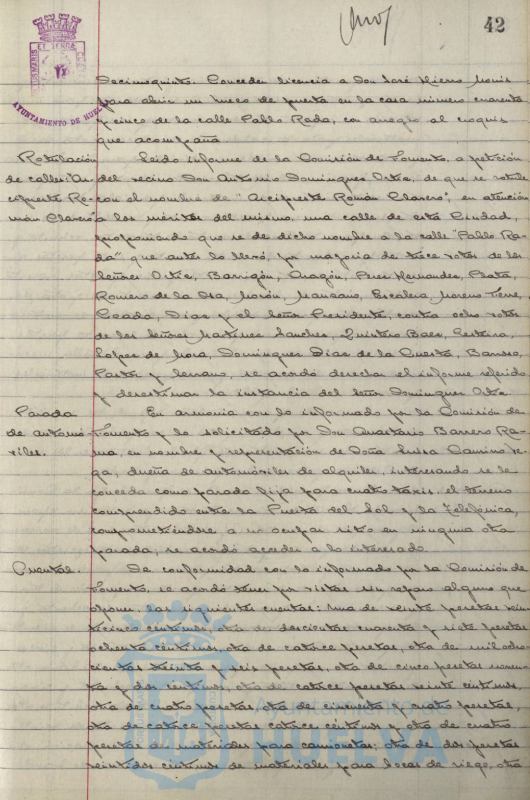 42
AYUNTAMIENTO DE HUELVA
Decimoquinto. Conceder licencia a Don José Hierro
para abrir un hueco de puerta en la casa número cuarenta
y cinco de la calle Pablo Rada, con arreglo al croquis
que acompaña.
Rotulación Leído informe de la Comisión de Fomento, a petición
de calles "Ar- del vecino Don Antonio Dominguez Ortiz, de que se rotule
cipreste Ro- con el nombre de "Arcipreste Román Clavero", en atención
mán Clavero" a los méritos del mismo, una calle de esta Ciudad,
proponiendo que se de dicho nombre a la calle "Pablo Ra-
da" que antes lo llevó, por mayoria de trece votos de los
Señores Ortiz, Barrigón, Aragón, Perez Hernandez, Plata,
Romero de la Osa, Morón, Manzano, Escalera, Moreno
Diaz y el Señor Presidente, contra ocho votos
de los Señores Martinez Sanchez, Quintero Baez,
Lopez de Mora, Dominguez, Diaz de la Cuesta, Barroso,
Pastor y Serrano, se acordó desechar el informe referido
y desestimar la instancia del Señor Dominguez Ortiz.
Parada En armonia con lo informado por la Comisión de
de automó- Fomento y lo solicitado por Don Barrero Ra-
viles. en nombre y representación de Doña Luisa Camino Ve-
ga, dueña de automóviles de alquiler, interesando se le
conceda como parada fija para cuatro taxis, el terreno
comprendido entre la Puerta del Sol y la Telefónica,
comprometiéndose a no ocupar sitio en ninguna otra
parada, se acordó acceder a lo interesado.
Cuentas. De conformidad con lo informado por la Comisión de
Fomento, se acordó tener por vistas sin reparo alguno que
oponer, las siguientes cuentas: Una de veinte pesetas vein-
ticinco centimos, otra de doscientas cuarenta y siete pesetas
ochenta centimos, otra de catorce pesetas, otra de mil ocho-
cientas treinta y seis pesetas, otra de cinco pesetas noven-
ta y dos centimos, otra de catorce pesetas veinte centimos,
otra de cuatro pesetas, otra de cincuenta y cuatro pesetas,
otra de catorce pesetas catorce céntimos y otra de cuatro
pesetas de materiales para camionetas; otra de dos pesetas
veintidos centimos de materiales para bocas de riego, otra
Ayuntamiento de
HUELVA